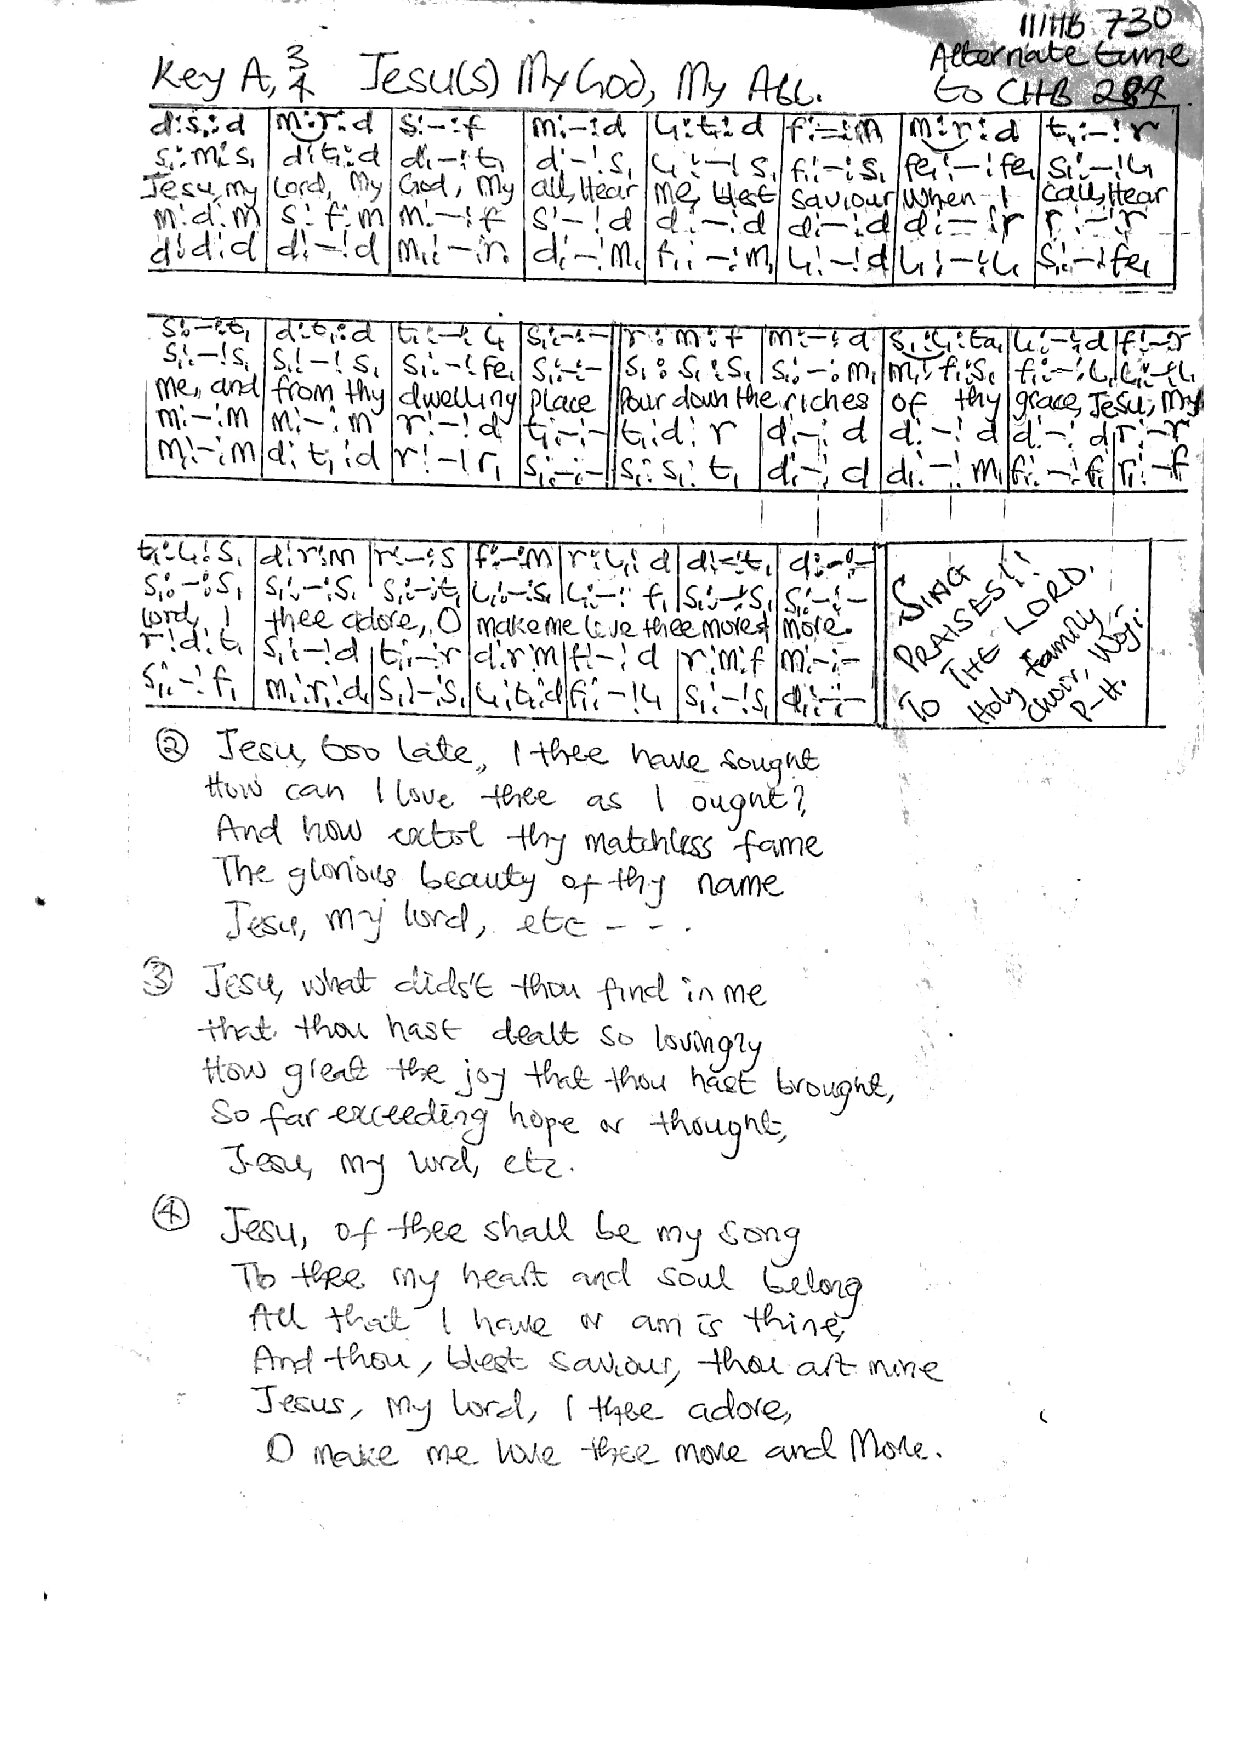 IIIHB 730
Alternate tune
to CHB 284.
Key A, 3/4 Jesu(s) My God, My All.
d:s₁:d | m:r:d | s:-:f | m:-:d | l₁:t₁:d | f:-:m | m:r:d | t₁:-:r
s₁:m₁:s₁ | d:t₁:d | d:-:t₁ | d:-:s₁ | l₁:-:s₁ | f₁:-:s₁ | fe₁:-:fe₁ | s₁:-:l₁
Jesu, my Lord, My God, My all, Hear me, blest Saviour When I call, Hear
m:d:m | s:f:m | m:-:f | s:-:d | d:-:d | d:-:d | d:-:r | r:-:r
d:d:d | d:-:d | m₁:-:r₁ | d₁:-:m₁ | f₁:-:m₁ | l₁:-:d | l₁:-:l₁ | s₁:-:fe₁
s:-:t₁ | d:t₁:d | t₁:-:l₁ | s₁:-:- || r:m:f | m:-:d | s₁:l₁:ta₁ | l₁:-:d | f:-:r
s₁:-:s₁ | s₁:-:s₁ | s₁:-:fe₁ | s₁:-:- || s₁:s₁:s₁ | s₁:-:m₁ | m₁:f₁:s₁ | f₁:-:l₁ | l₁:-:l₁
me, and from thy dwelling place Pour down the riches of thy grace, Jesu, My
m:-:m | m:-:m | r:-:d | t₁:-:- || t₁:d:r | d:-:d | d:-:d | d:-:d | r:-:r
m₁:-:m | d:t₁:d | r:-:r₁ | s₁:-:- || s₁:s₁:t₁ | d:-:d | d:-:m₁ | f₁:-:f₁ | r₁:-:f
t₁:l₁:s₁ | d:r:m | r:-:s | f:-:m | r:l₁:d | d:-:t₁ | d:-:-
s₁:-:s₁ | s₁:-:s₁ | s₁:-:t₁ | l₁:-:s₁ | l₁:-:f₁ | s₁:-:s₁ | s₁:-:-
lord, I thee adore, O make me love thee more & more.
r:d:t₁ | s₁:-:d | t₁:-:r | d:r:m | f:-:d | r:m:f | m:-:-
s₁:-:f₁ | m₁:r₁:d₁ | s₁:-:s₁ | l₁:t₁:d | f₁:-:l₁ | s₁:-:s₁ | d₁:-:-
SING
PRAISES!!
TO THE LORD.
Holy Family
Choir, Woji.
P-H.
② Jesu, too late, I thee have sought
How can I love thee as I ought?,
And how extol thy matchless fame
The glorious beauty of thy name
Jesu, my lord, etc - - .
③ Jesu, what dids't thou find in me
that thou hast dealt so lovingly
How great the joy that thou hast brought,
So far exceeding hope or thought,
Jesu, my lord, etc.
④ Jesu, of thee shall be my song
To thee my heart and soul belong
All that I have or am is thine,
And thou, blest saviour, thou art mine
Jesus, my lord, I thee adore,
O make me love thee more and More.